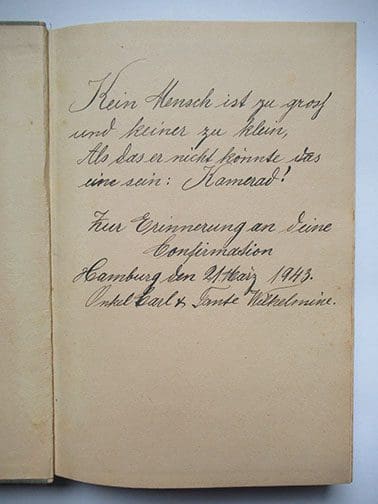 Kein Mensch ist zu groß
und keiner zu klein,
Als das er nicht könnte das
eine sein: Kamerad!
Zur Erinnerung an deine
Confirmation
Hamburg den 21 März 1943.
Onkel Carl & Tante Wilhelmine.